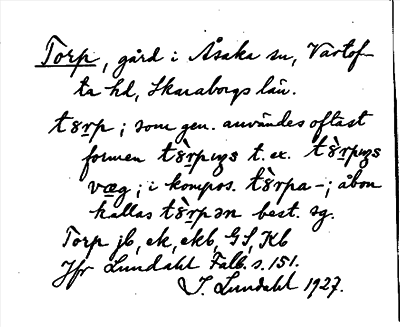 Torp, gård i Åsaka sn, Vartof-
ta hd, Skaraborgs län.
tɜrp; som gen. användes oftast
formen tɜ̀rpɩŋs t. ex. tɜ̀rpɩŋs
væg; i kompos. tɜ̀rpa-; åbon
kallas tɜ̀rpən best. sg.
Torp jb, ek, ekb, GS, Kb
Jfr Lundahl Falb. s. 151.
I. Lundahl 1927.